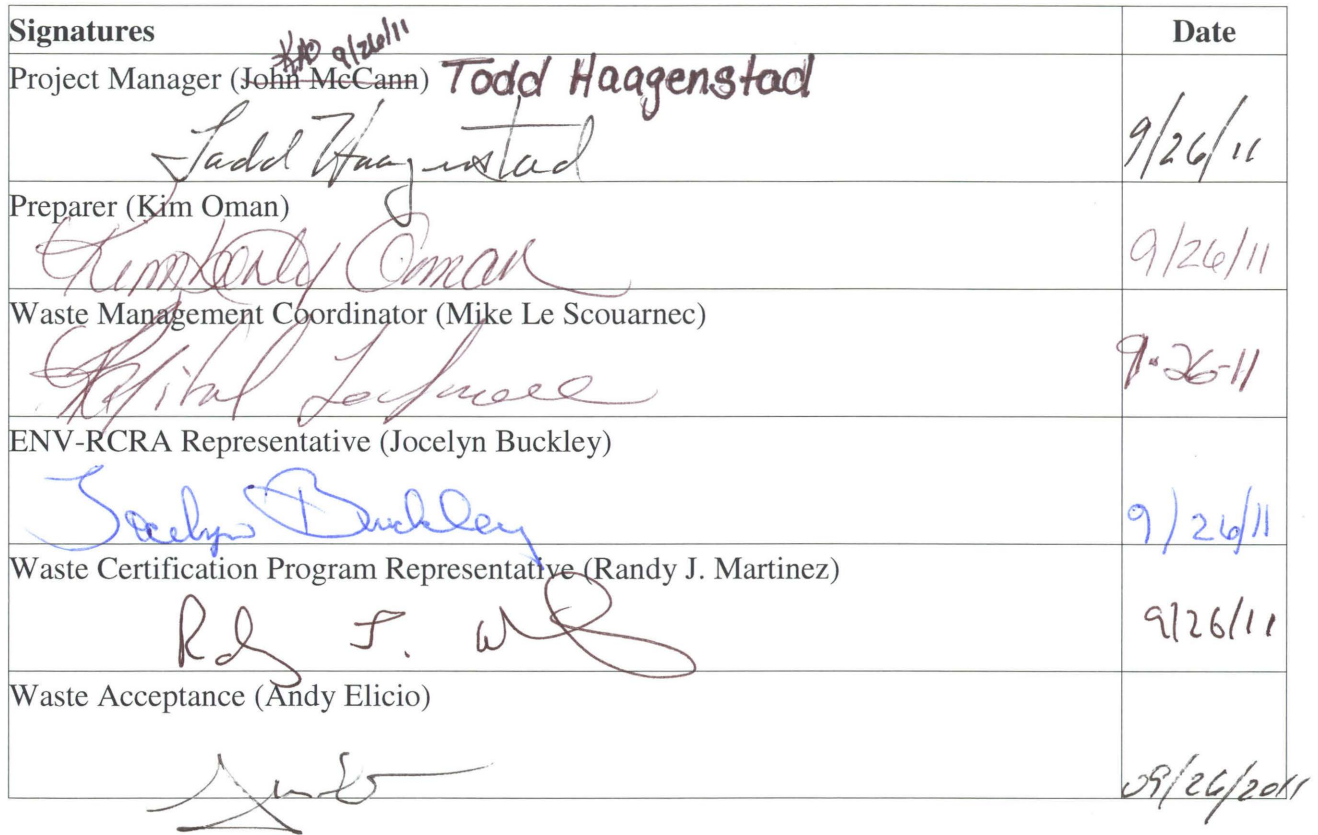 Signatures Date
KAO 9/26/11
Project Manager (John McCann) Todd Haagenstad
Todd Haagenstad 9/26/11
Preparer (Kim Oman)
Kimberly Oman 9/26/11
Waste Management Coordinator (Mike Le Scouarnec)
9-26-11
ENV-RCRA Representative (Jocelyn Buckley)
Jocelyn Buckley 9/26/11
Waste Certification Program Representative (Randy J. Martinez)
J. 9/26/11
Waste Acceptance (Andy Elicio)
09/26/2011